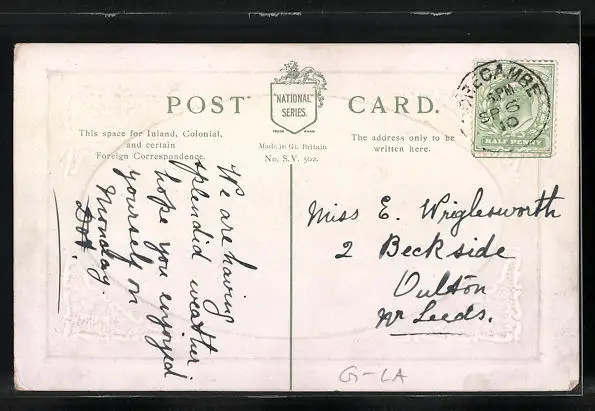 POST CARD.
"NATIONAL"
SERIES.
TRADE MARK
This space for Inland, Colonial,
and certain
Foreign Correspondence.
Made in Gt. Britain
No. S.V. 502.
The address only to be
written here.
MORECAMBE
5 PM
SP 6
10
HALF PENNY
We are having
splendid weather
hope you enjoyed
yourself on
Monday.
Dot.
Miss E. Wriglesworth
2 Beckside
Oulton
Nr Leeds.
G-LA